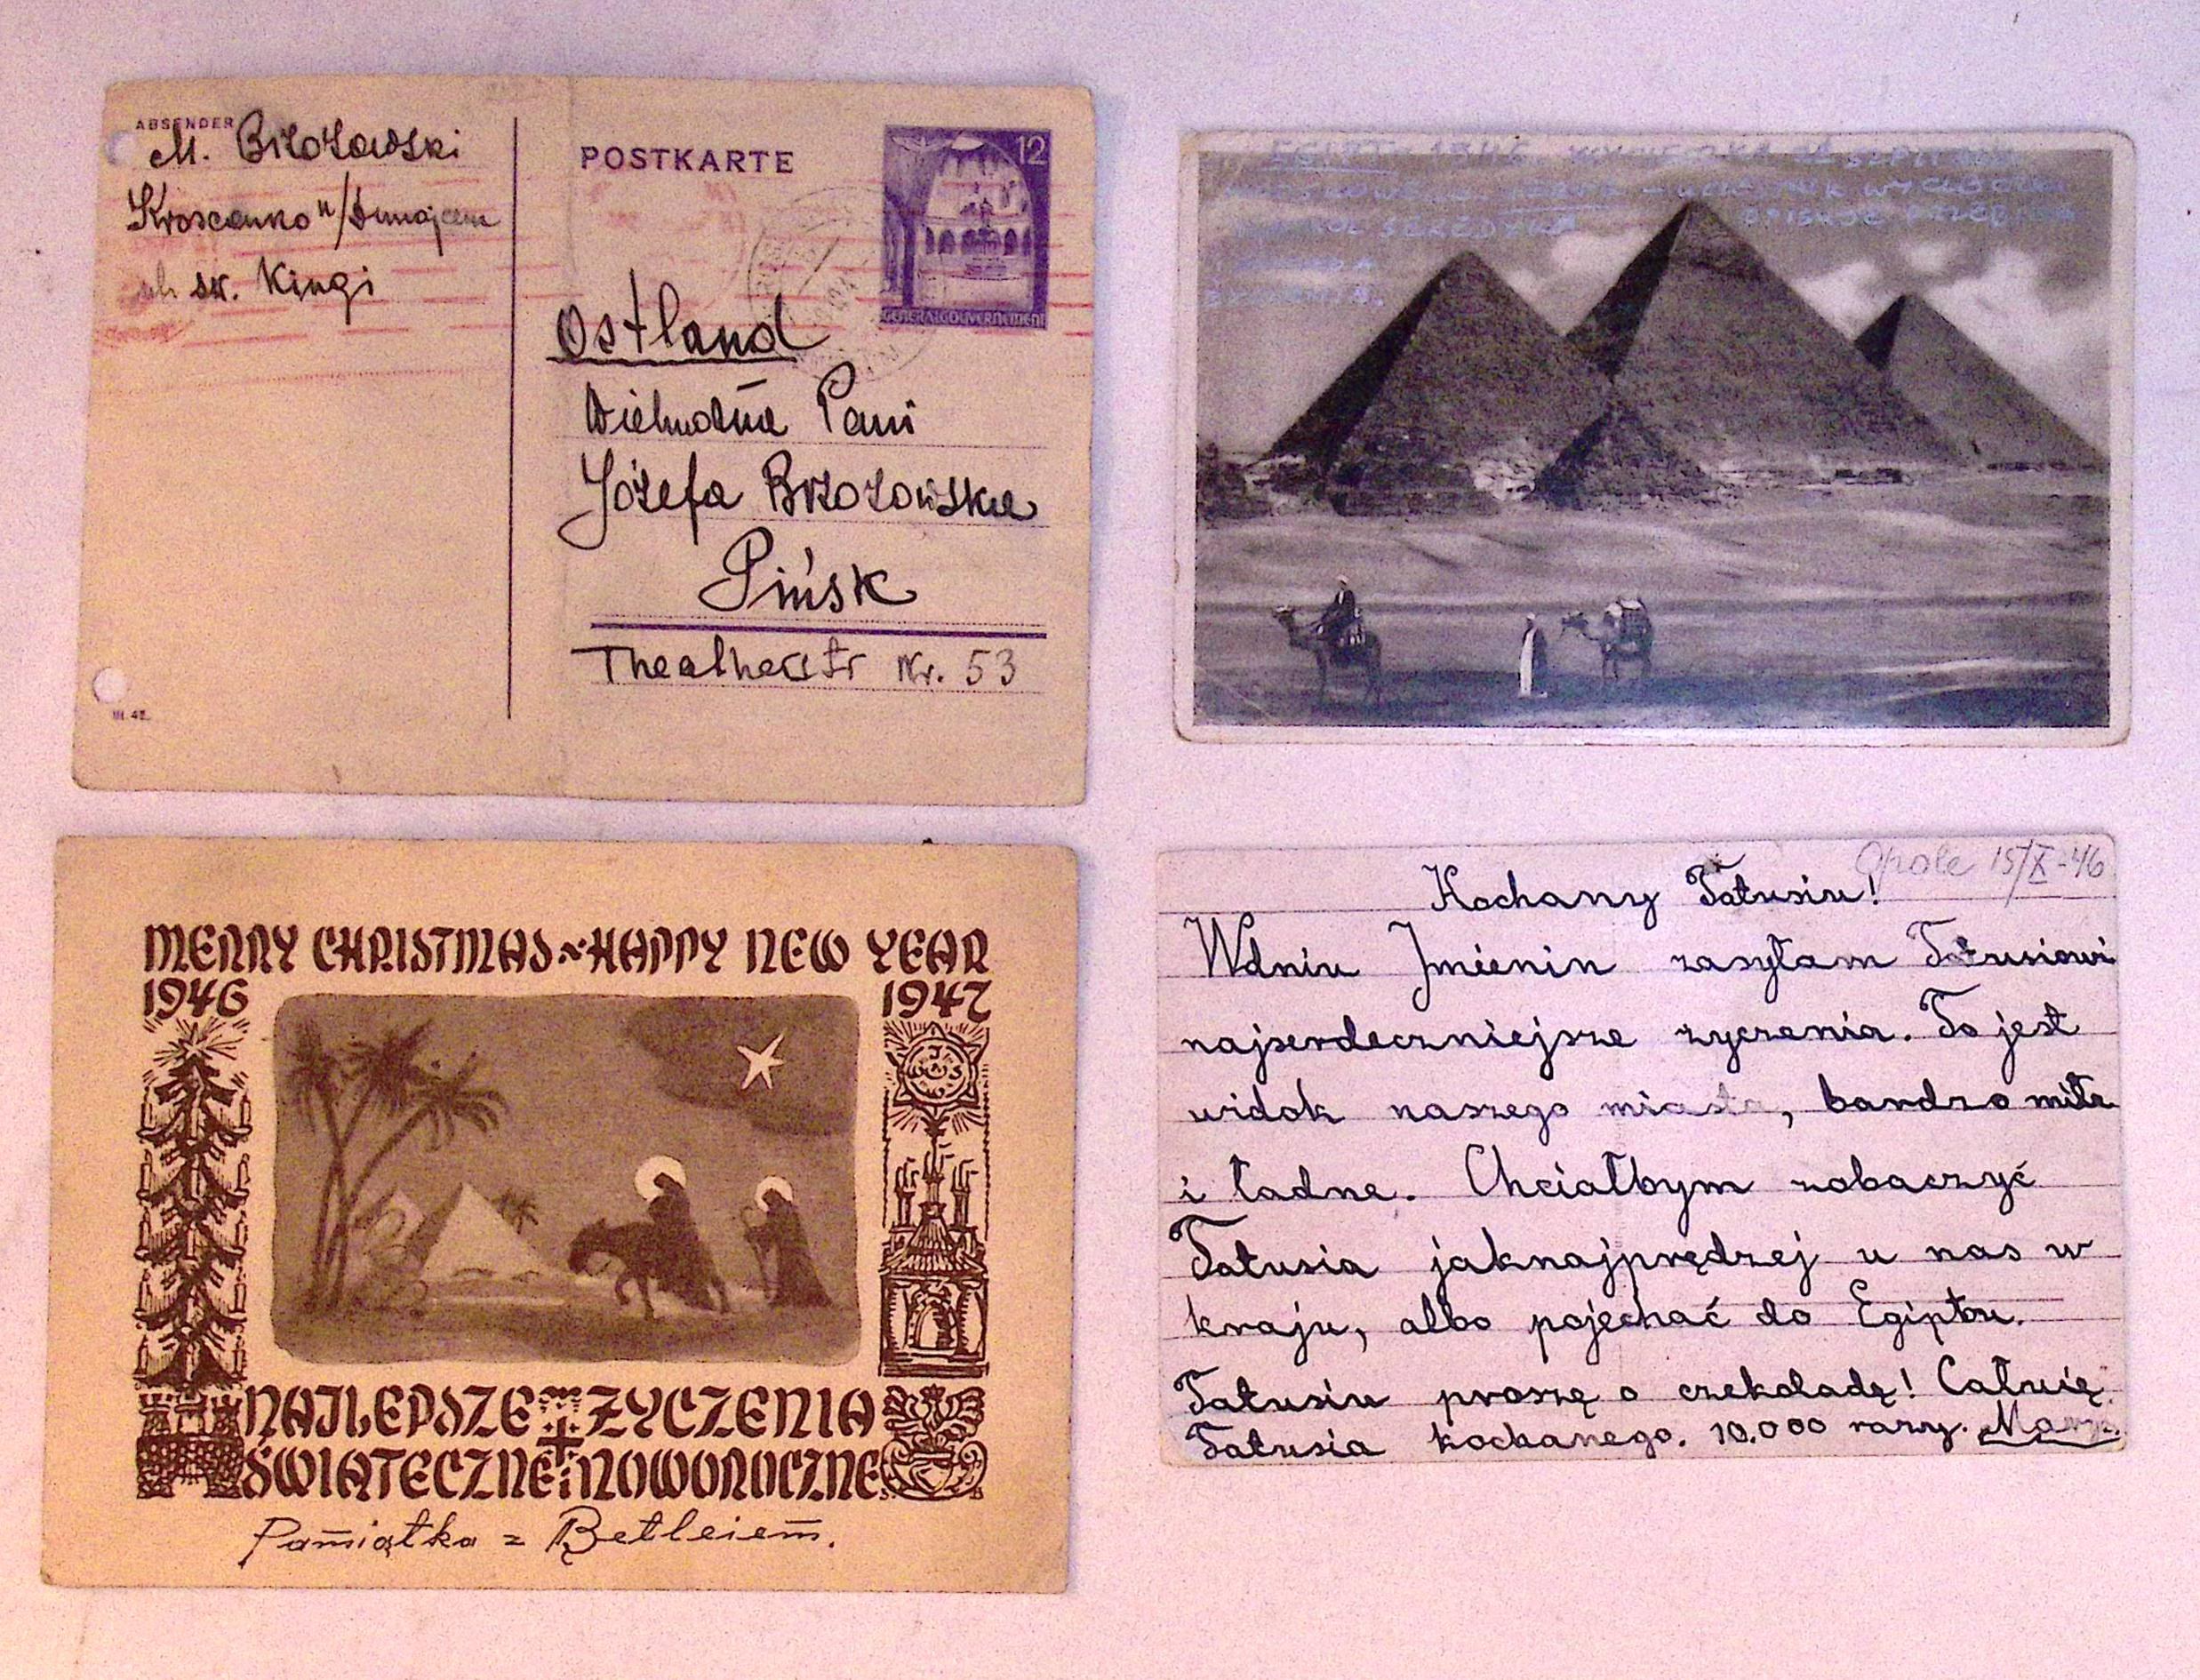 ABSENDER
M. Brzozowski
Krościenko n/Dunajcem
ul. św. Kingi
III. 42.
POSTKARTE
12
GENERALGOUVERNEMENT
Ostland
Wielmożna Pani
Józefa Brzozowska
Pińsk
Theatherstr Nr. 53
EGIPT - 1946. WYCIECZKA ZE
MERRY CHRISTMAS ~ HAPPY NEW YEAR
1946 1947
NAJLEPSZE ŻYCZENIA
ŚWIĄTECZNE I NOWOROCZNE
Pamiątka z Betleiem.
Opole 15/X-46
Kochany Tatusiu!
Wdniu Jmienin zasyłam Tatusiowi
najserdeczniejsze życzenia. To jest
widok naszego miasta, bardzo miłe
i ładne. Chciałbym zobaczyć
Tatusia jaknajprędzej u nas w
kraju, albo pojechać do Egiptu.
Tatusiu proszę o czekoladę! Całuię
Tatusia kochanego. 10.000 razy.